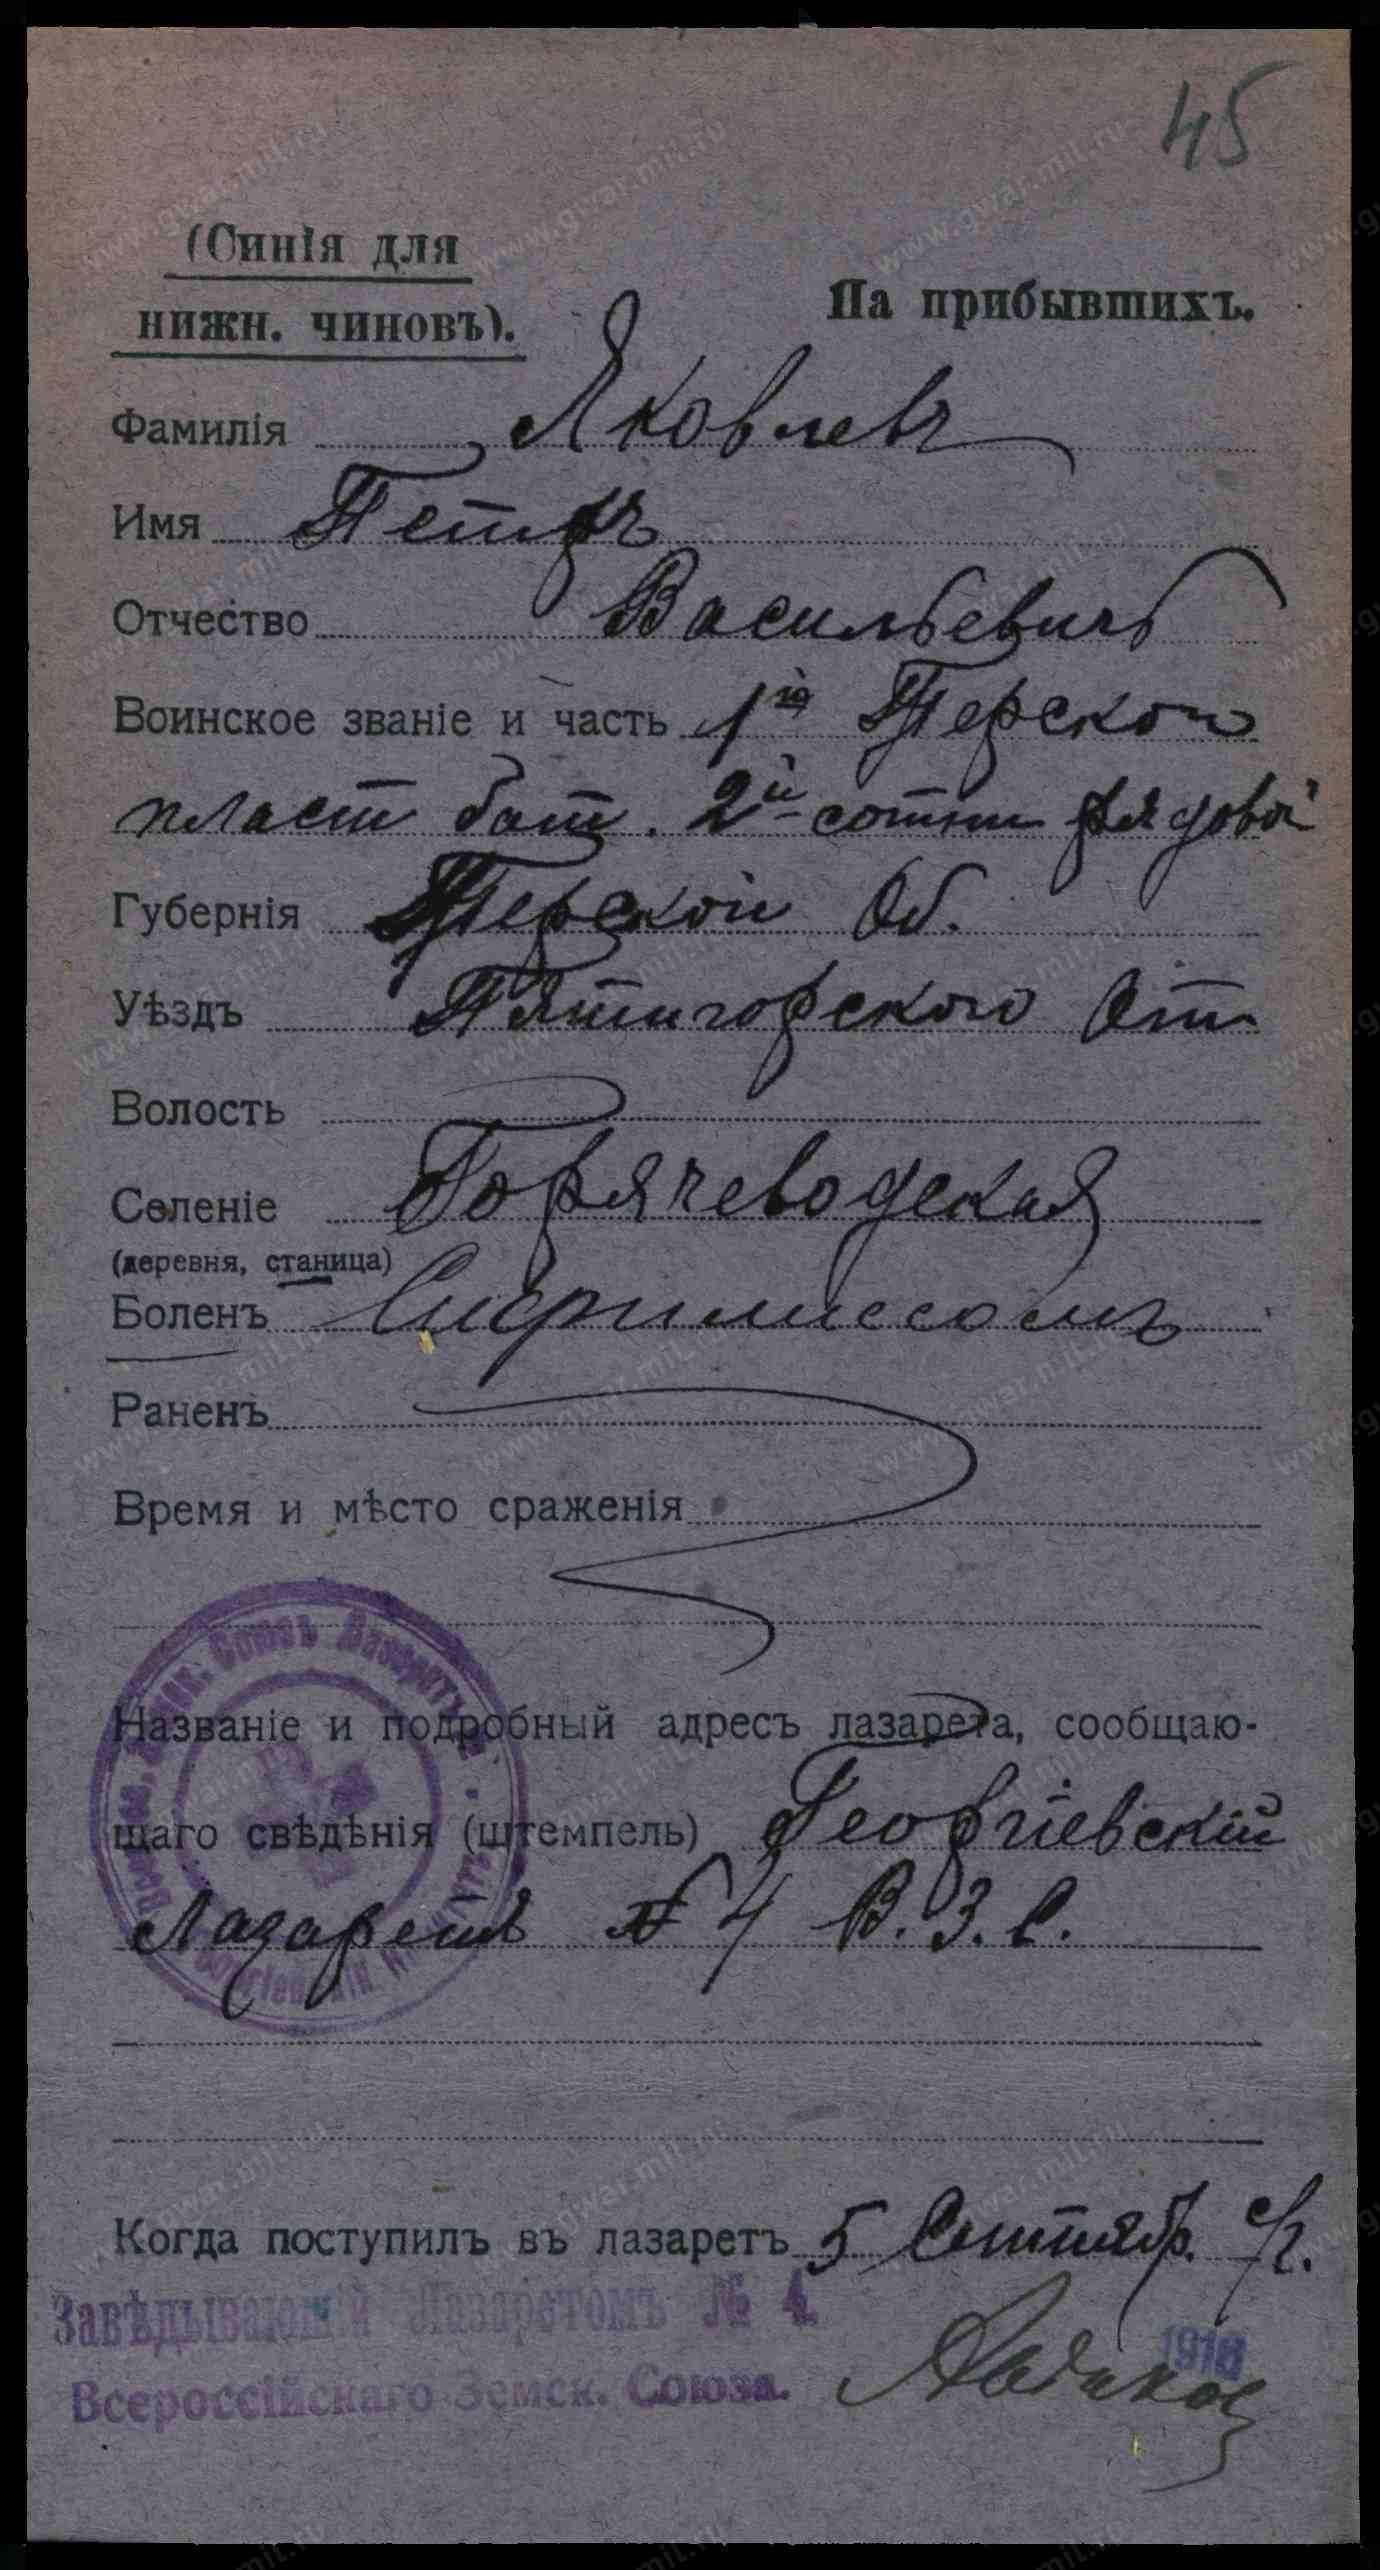 45
(Синія для
нижн. чиновъ).
На прибывшихъ.
Фамилія Яковлевъ
Имя Петръ
Отчество Васильевичъ
Воинское званіе и часть 1й Терской
пласт бат. 2й сотни рядовой
Губернія Терской Об.
Уѣздъ Пятигорского От
Волость
Селеніе Горячеводская
(деревня, станица)
Боленъ Сифилисомъ
Раненъ
Время и мѣсто сраженія
Названіе и подробный адресъ лазарета, сообщаю-
щаго свѣдѣнія (штемпель) Георгіевскій
Лазаретъ № 4 В. З. С.
Когда поступилъ въ лазаретъ 5 Сентябр. с/г.
Завѣдывающій Лазаретомъ № 4
1916
Всероссійскаго Земск. Союза.